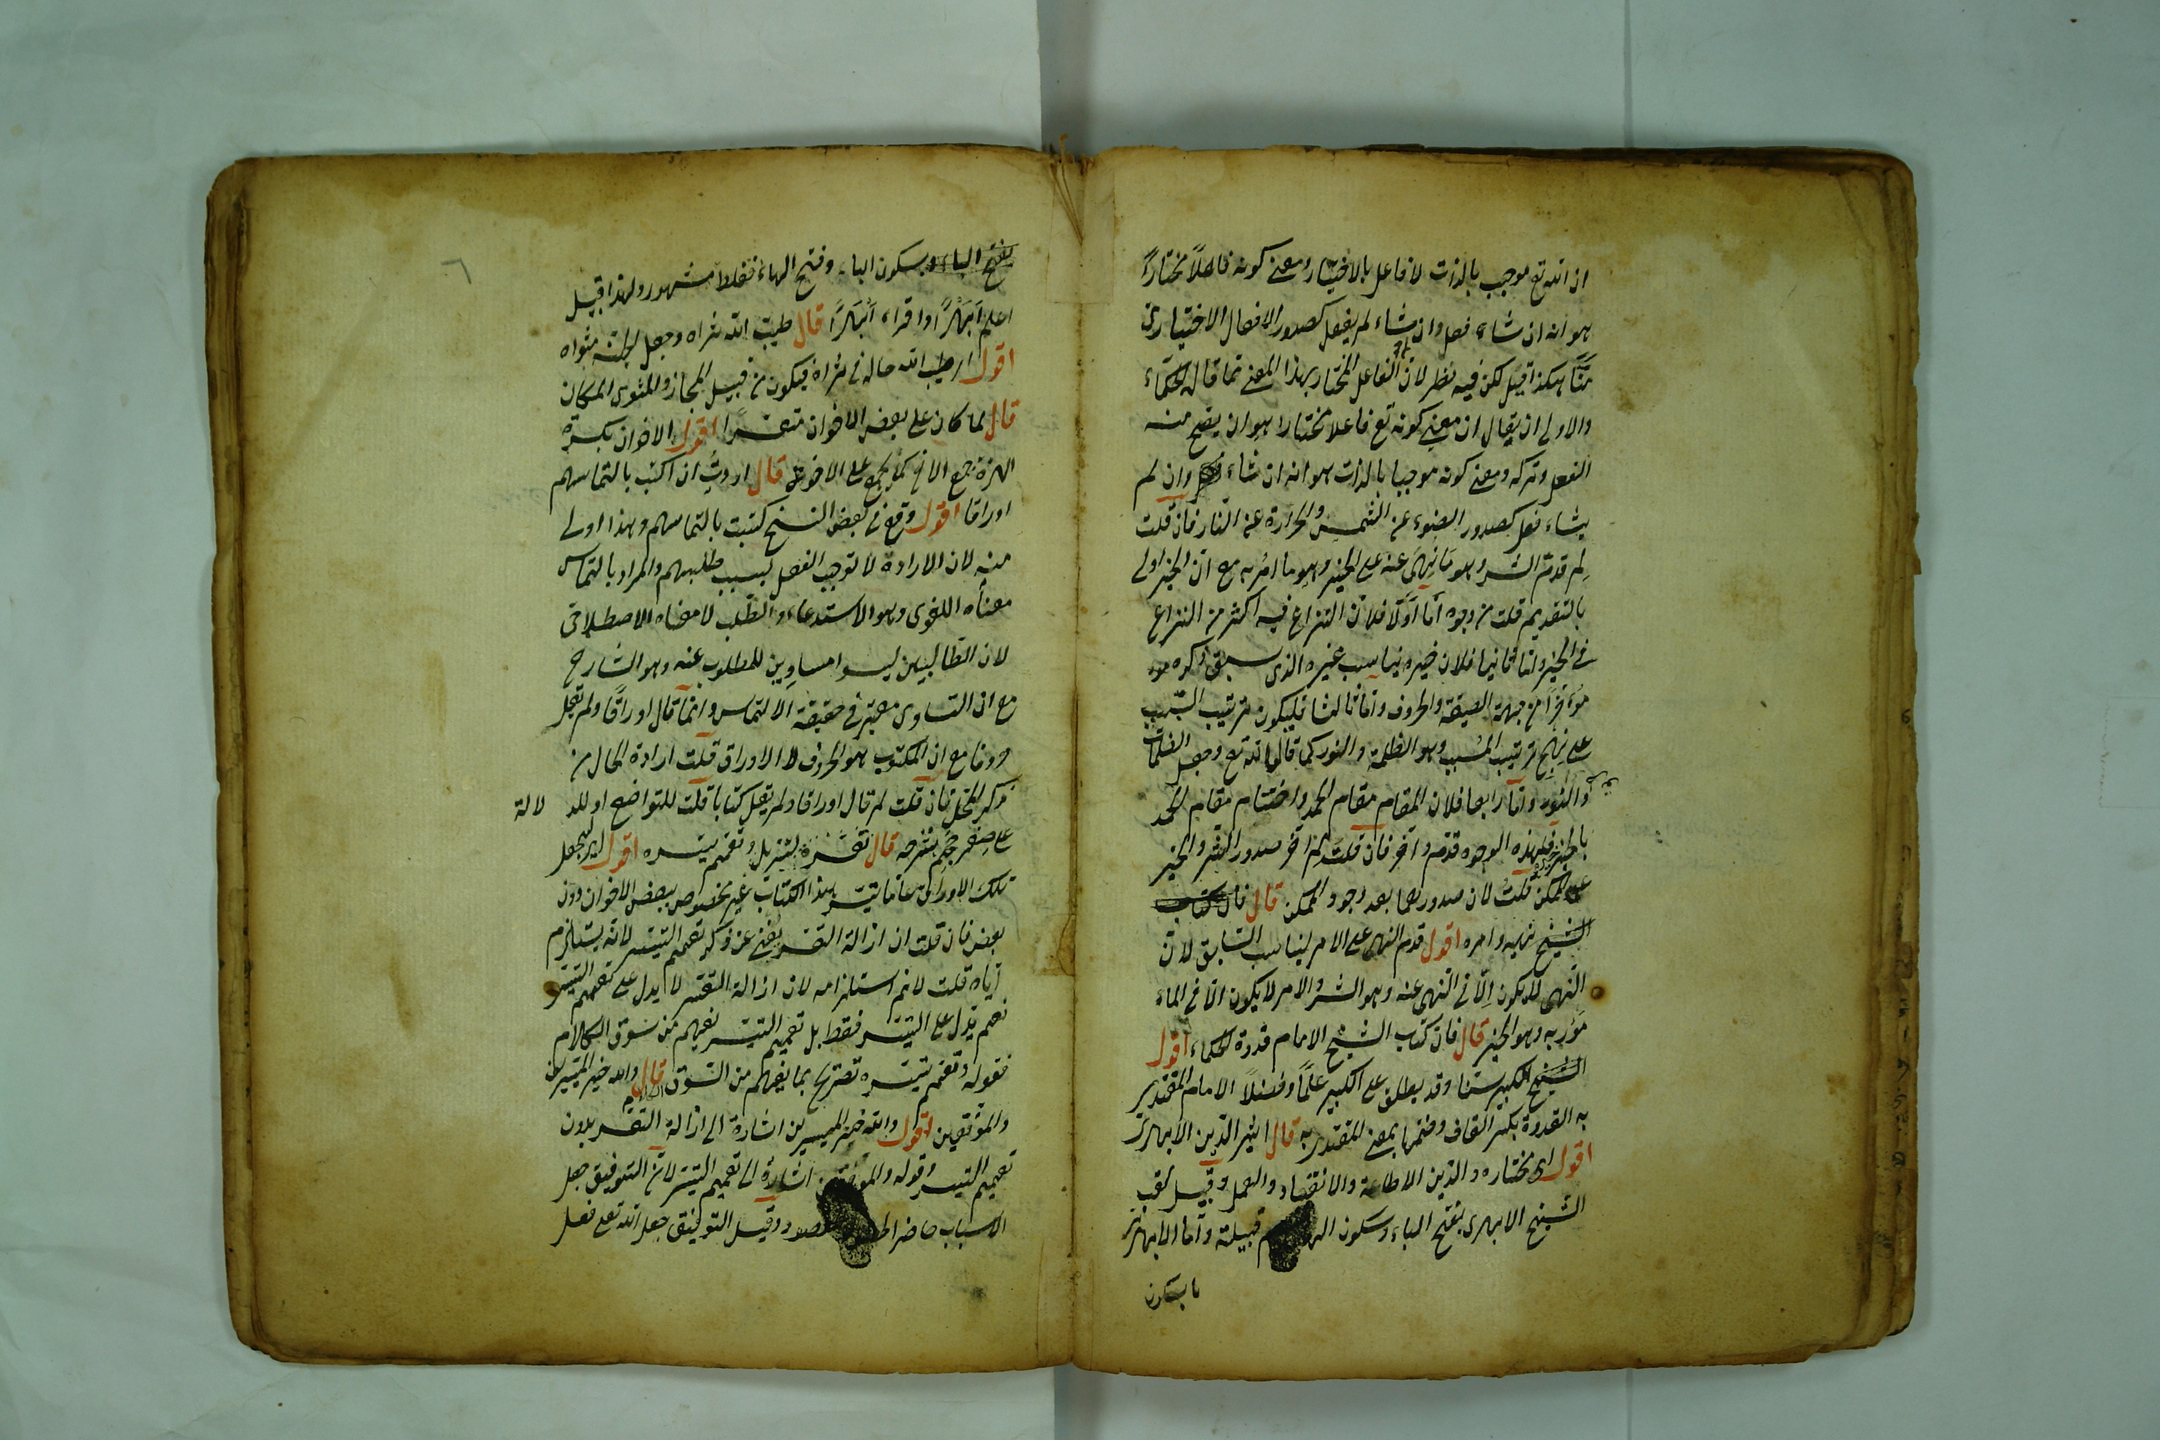 ان الله تع موجب بالذات لا فاعل بالاختيار ومعنى كونه فاعلاً مختاراً
هو انه ان شاء فعل وان شاء لم يفعل كصدور الافعال الاختيارى
منّا هكذا قيل لكن فيه نظر لان الفاعل المختار بهذا المعنى مما قاله الحكماء
والاولى ان يقال ان معنى كونه تع فاعلا مختارا هو ان يصح منه
الفعل وتركه ومعنى كونه موجبا بالذات هو انه ان شاء وان لم
يشاء فعل كصدور الضوء عن الشمس والحرارة عن النار فان قلت
لِم قدم الشر وهو ما نهى عنه على الخير وهو ما امر به مع ان الخير اولى
بالتقديم قلت من وجوه اما اوّلا فلان النزاع فيه اكثر من النزاع
فى الخير واما ثانيا فلان خيره يناسب غيره الذى سبق ذكره
مؤخرا من جهة الصيغة والحروف واما ثالثا فليكون ترتيب السّبب
على نهج ترتيب المسبب وهو الظلمة والنور كما قال الله تع وجعل الظلمات
والنور واما رابعا فلان المقام مقام الحمد واختتام مقام الحمد
بالخير فلهذه الوجوه قدم واخر فان قلت لم اخر صدور الشر والخير
عن الممكن قلت لان صدورهما بعد وجود الممكن قال فان كتاب
الشيخ نهيه وامره اقول قدم النهى على الامر ليناسب السابق لان
النهى لا يكون الّا فى النهى عنه وهو الشر والامر لا يكون الّا فى الماء
مور به وهو الخير قال فان كتاب الشيخ الامام قدوة الحكماء اقول
الشيخ الكبير سنا وقد يطلق على الكبير علمًا وفضلاً الامام المقتدى
به القدوة بكسر القاف وضمها بمعنى المقتدى به قال اثير الدين الابهرى
اقول اى مختاره والدين الاطاعة والانقياد والعمل وقيل لقب
الشيخ الابهرى بفتح الباء وسكون قبيلة واما الابهرى
بفتح الباء وبسكون الباء وفتح الهاء فغلط مشهور ولهذا قيل
اعلم ابَهْرًا واقراء ابْهَرًا قال طيب الله ثراه وجعل الجنة مثواه
اقول اى طيب الله حاله فى ثراه فيكون من قبيل المجاز والمثوى المكان
قال لما كان على بعض الاخوان متعسّرا اقول الاخوان بكسرة
الهمزة جمع الاخ كما يجمع على الاخوة قال اردت ان اكتب بالتماسهم
اوراقا اقول وقع فى بعض النسخ كتبت بالتماسهم وهذا اولى
منه لان الارادة لا توجب الفعل بسبب طلبهم والمراد بالتماس
معناه اللغوى وهو الاستدعاء والطلب لا معناه الاصطلاحى
لان الطالبين ليسوا مساوين للمطلوب عنه وهو الشارح
مع ان التساوى معتبر فى حقيقة الالتماس وانما قال اوراقًا ولم يقل
حروفا مع ان المكتوب هو الحروف لا الاوراق قلت ارادة الحال من
ذكر المحل فان قلت لم قال اوراقا ولم يقل كتابا قلت للتواضع او للد لالة
على صغر حجم شرحه قال تعسره لتنزيل وتعمم تيسره اقول اى ليجعل
تلك الاوراق عاما تيسر هذا الكتاب غير مخصوص ببعض الاخوان دون
بعض فان قلت ان ازالة التعسر يغنى عن ذكر تعميم التيسر لانه يستلزم
اياه قلت لا نم استلزامه لان ازالة التعسر لا يدل على تعميم التيسر
نعم يدل على التيسر فقط بل تعميم التيسر يفهم من سوق الكلام
فقوله وتعمم تيسره تصريح بما يفهم من السّوق قال والله خير الميسرين
والموفقين اقول والله خير الميسرين اشارة الى ازالة التعسر بدون
تعميم التيسر وقوله والموفقين اشارة الى تعميم التيسر لان التوفيق جعل
الاسباب حاضرا وقيل التوفيق جعل الله تعالى فعل